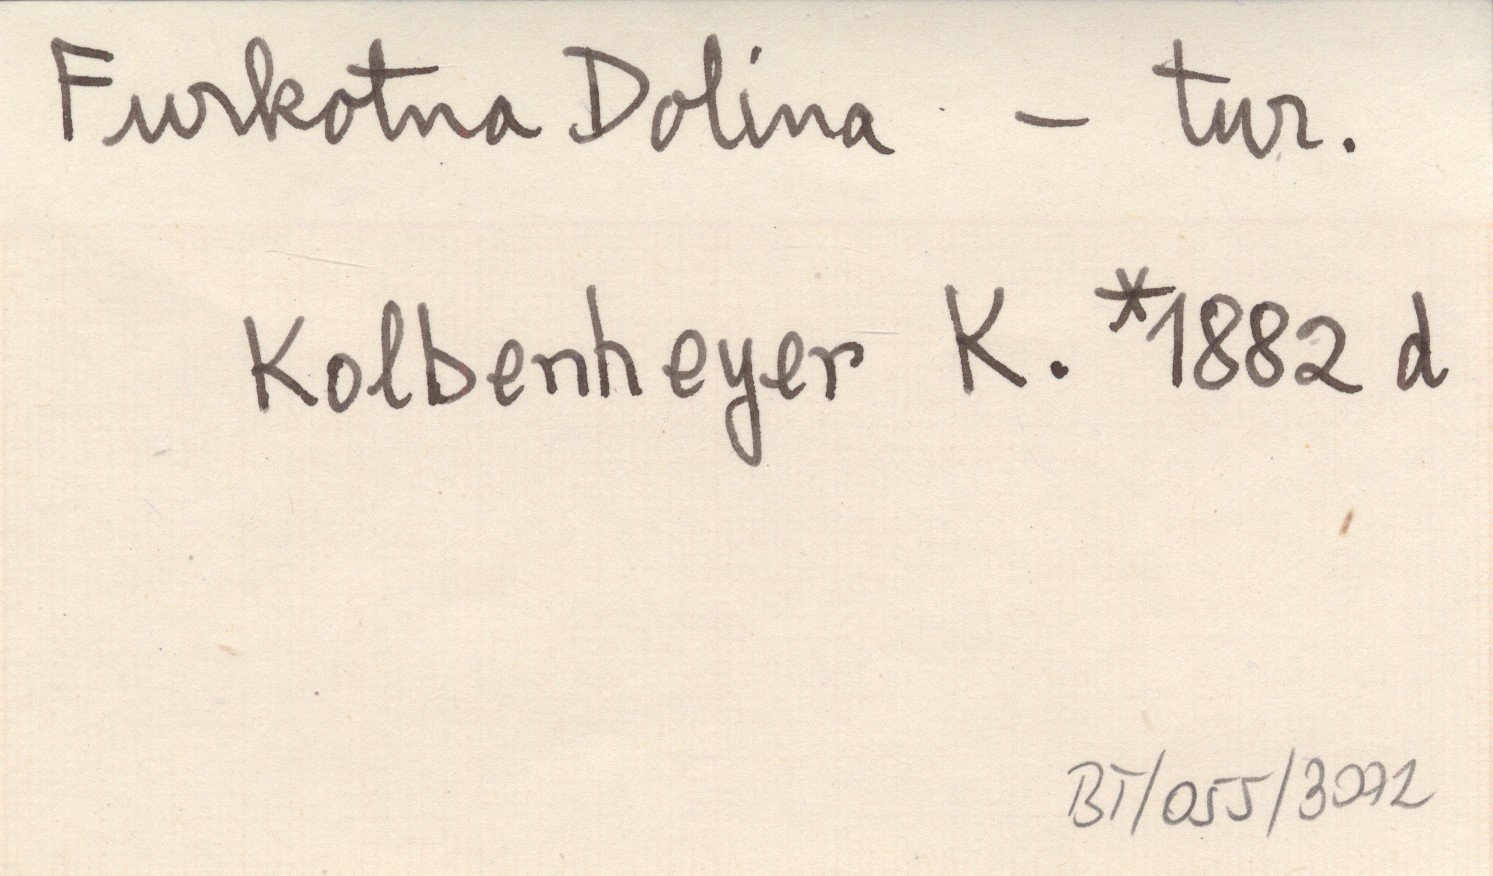 Furkotna Dolina - tur.
Kolbenheyer K. *1882 d
BT/055/3072